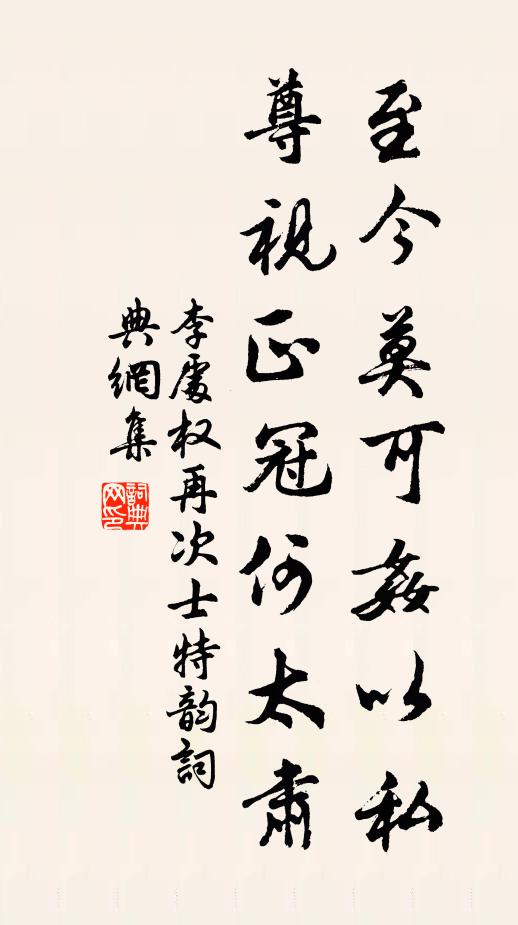 至今莫可姦以私
尊視正冠何太肅
李處权再次士特韵詞
典網集
詞典
网印